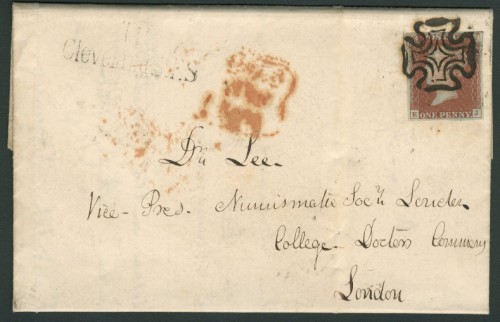 E J
ONE PENNY
Dr. Lee.
Vice-Pres. Numismatic Socy London
College - Doctors Commons
London